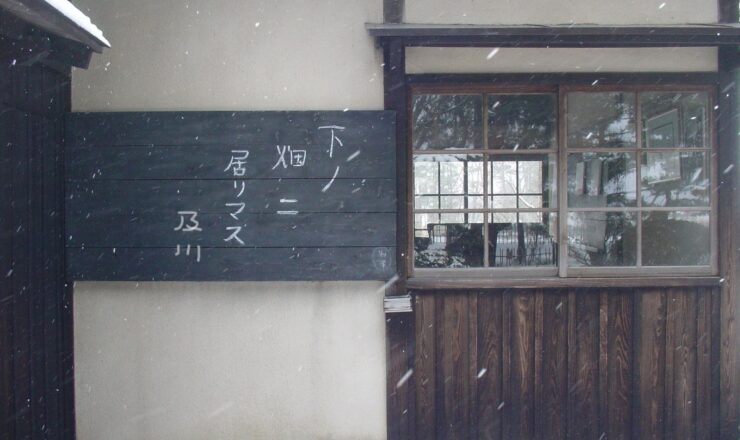 下ノ
畑ニ
居リマス
及川